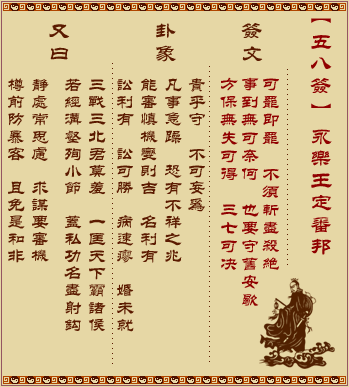 【五八簽】 永樂王定番邦
簽文
可罷即罷 不須斬盡殺絕
事到無可奈何 也要守舊安歇
方保無失可得 三七可决
卦象
貴乎守 不可妄為
凡事急躁 恐有不祥之兆
能審慎機變則吉 名利有
訟利有 訟可勝 病速瘳 婚未就
又曰
三戰三北君莫羞 一匡天下霸諸侯
若經溝壑殉小節 蓋私功名盡射鈎
靜處常思慮 求謀要審機
樽前防暴客 且免是和非